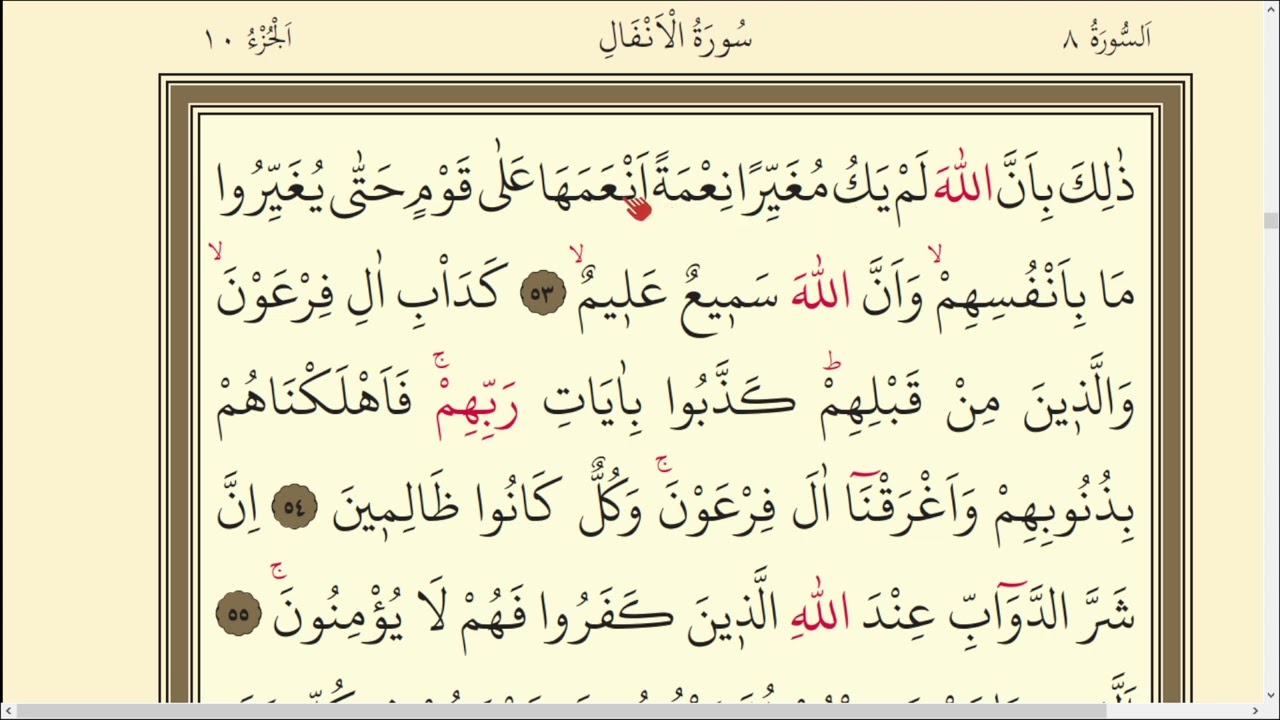 اَلسُّورَةُ ٨ سُورَةُ الْاَنْفَالِ اَلْجُزْءُ ١٠
ذٰلِكَ بِاَنَّ اللّٰهَ لَمْ يَكُ مُغَيِّرًا نِعْمَةً اَنْعَمَهَا عَلٰى قَوْمٍ حَتّٰى يُغَيِّرُوا
مَا بِاَنْفُسِهِمْۙ وَاَنَّ اللّٰهَ سَمٖيعٌ عَلٖيمٌۙ ٥٣ كَدَاْبِ اٰلِ فِرْعَوْنَۙ
وَالَّذٖينَ مِنْ قَبْلِهِمْؕ كَذَّبُوا بِاٰيَاتِ رَبِّهِمْۚ فَاَهْلَكْنَاهُمْ
بِذُنُوبِهِمْ وَاَغْرَقْنَٓا اٰلَ فِرْعَوْنَۚ وَكُلٌّ كَانُوا ظَالِمٖينَ ٥٤ اِنَّ
شَرَّ الدَّوَٓابِّ عِنْدَ اللّٰهِ الَّذٖينَ كَفَرُوا فَهُمْ لَا يُؤْمِنُونَۚ ٥٥